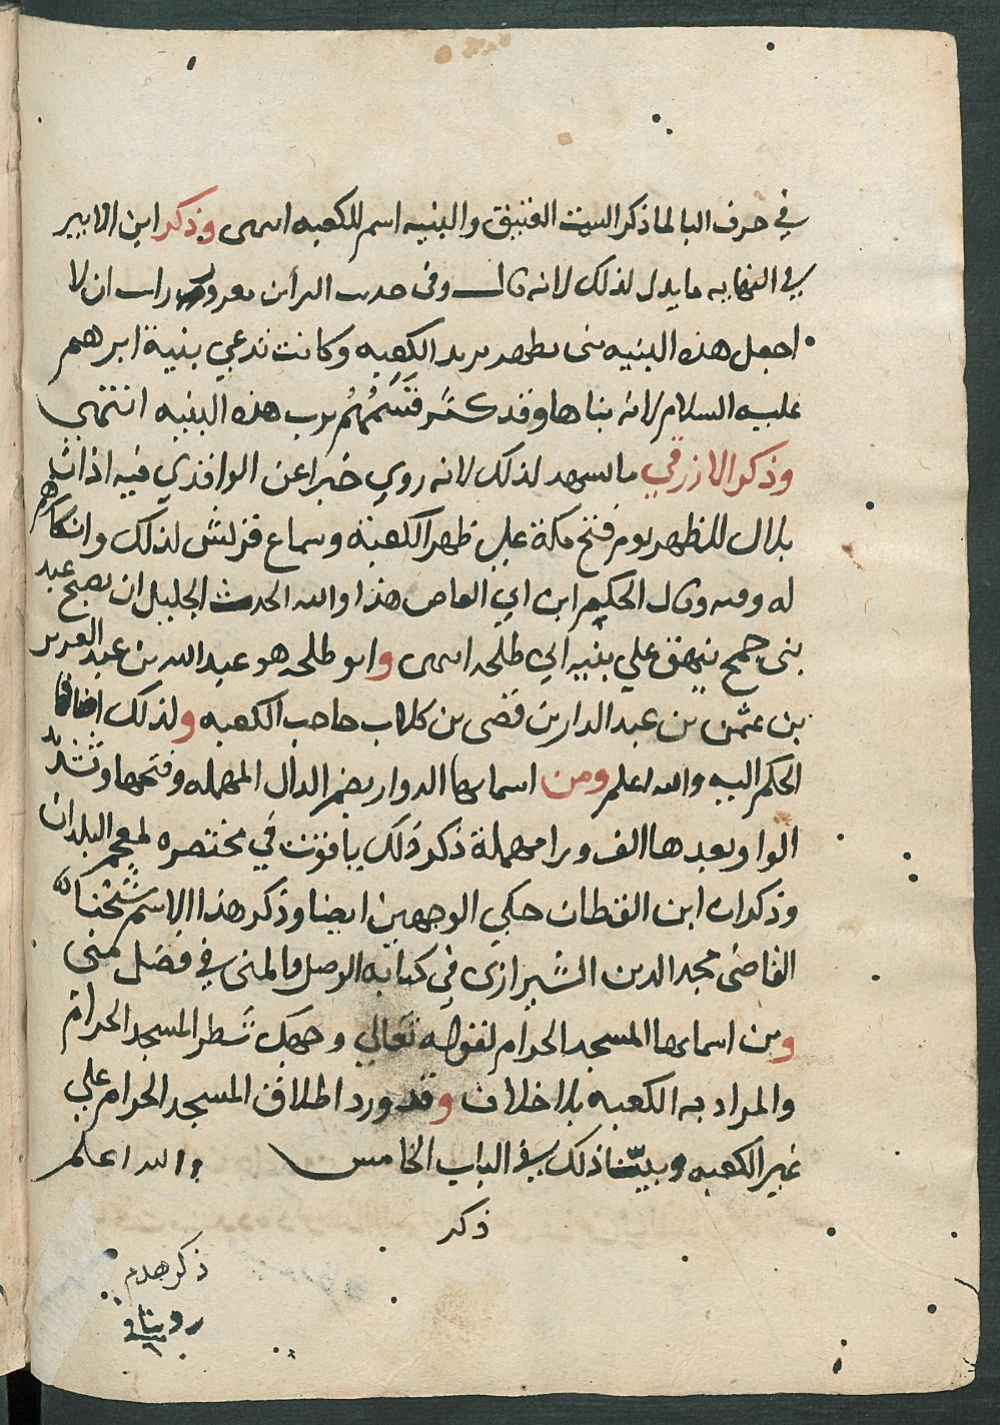 في حرف البا لما ذكر البيت العتيق والبنيه اسم للكعبه انتهى وذكر ابن الاثير
في النهايه ما يدل لذلك لانه قال وفى حديث البرا بن معرور رايت ان لا
اجعل هذه البنيه منى بظهر يريد الكعبه وكانت تدعي بنية ابرهم
عليه السلام لانه بناها وقد كثر قسمهم برب هذه البنيه انتهي
وذكر الازرقي ما يشهد لذلك لانه روي خبرا عن الواقدي فيه اذان
بلال للظهر يوم فتح مكة علي ظهر الكعبة وسماع قريش لذلك وانكارهم
له وفيه وقال الحكم ابن ابي العاص هذا والله الحدث الجليل ان يصبح عبد
بنى جمح ينهق علي بنيه ابي طلحه انتهى وابو طلحه هو عبد الله بن عبد العزيز
بن عثمن بن عبد الدار بن قصى بن كلاب حاجب الكعبه ولذلك اضافها
الحكم اليه والله اعلم ومن اسمايها الدوار بضم الدال المهمله وفتحها وتشديد
الواو وبعدها الف ورا مهملة ذكر ذلك ياقوت في مختصره لمعجم البلدان
وذكر ان ابن القطان حكي الوجهين ايضا وذكر هذا الاسم شيخنا
القاضى مجد الدين الشيرازى في كتابه الوصل والمنى في فضل منى
ومن اسمايها المسجد الحرام لقوله تعالي وجهك شطر المسجد الحرام
والمراد به الكعبه بلا خلاف وقد ورد اطلاق المسجد الحرام علي
غير الكعبه وبينا ذلك في الباب الخامس والله اعلم
ذكر
ذكر هدم